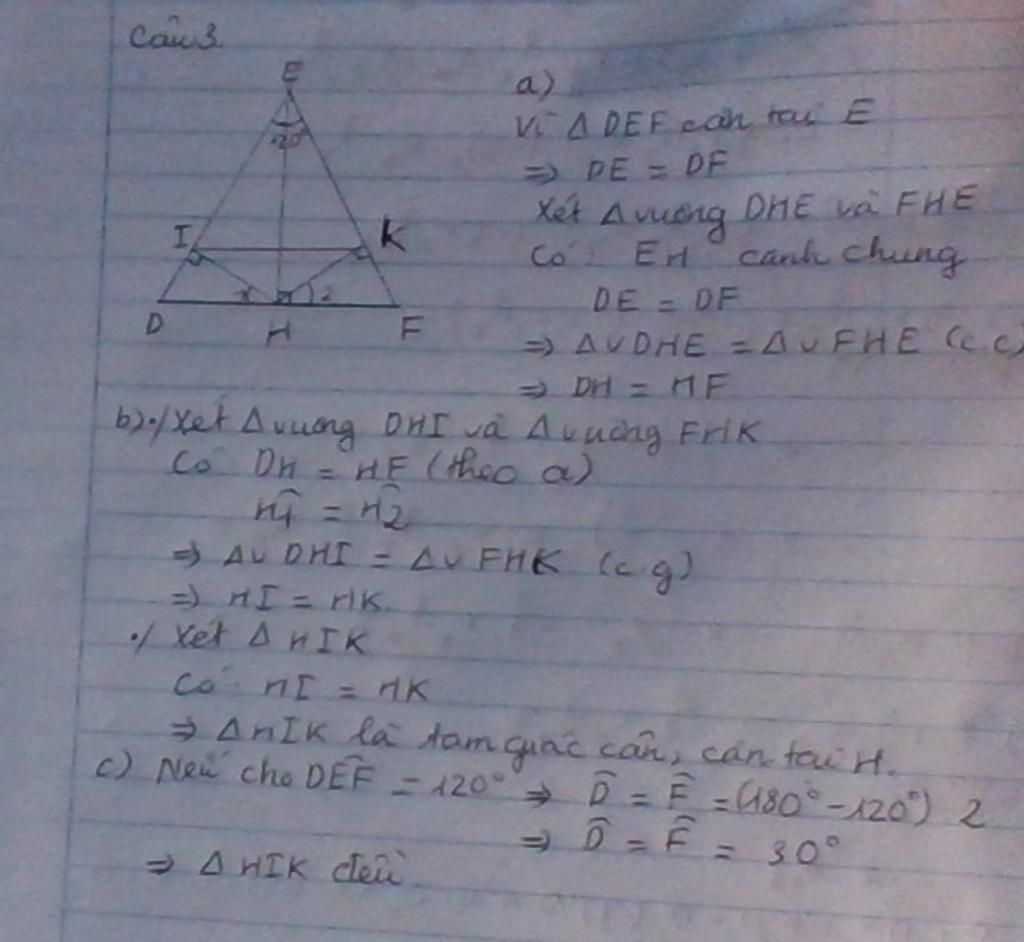 Câu 3
E
120°
I
K
D
H
F
1
2
a)
Vì Δ DEF cân tại E
=> DE = DF
Xét Δ vuông DHE và FHE
Có: EH cạnh chung
DE = DF
=> Δv DHE = Δv FHE (c c)
=> DH = HF
b) ·/ Xét Δ vuông DHI và Δ vuông FHK
Có DH = HF (theo a)
Ĥ1 = Ĥ2
=> Δv DHI = Δv FHK (c g)
=> HI = HK
·/ Xét Δ HIK
Có HI = HK
=> Δ HIK là tam giác cân, cân tại H.
c) Nếu cho DÊF = 120° => D̂ = F̂ = (180° - 120°) 2
=> D̂ = F̂ = 30°
=> Δ HIK đều.